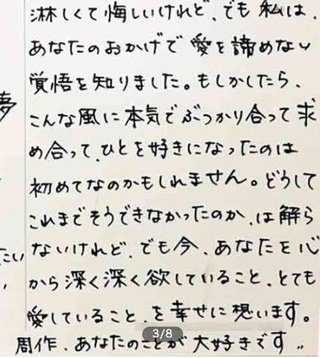 夢
たい
淋しくて悔しいけれど、でも私は、
あなたのおかげで愛を諦めない
覚悟を知りました。もしかしたら、
こんな風に本気でぶつかり合って求
め合って、ひとを好きになったのは
初めてなのかもしれません。どうして
これまでそうできなかったのか、は解ら
ないけれど、でも今、あなたを心
から深く深く欲していること、とても
愛していること、を幸せに想います。
周作、あなたのことが大好きです。
3/8